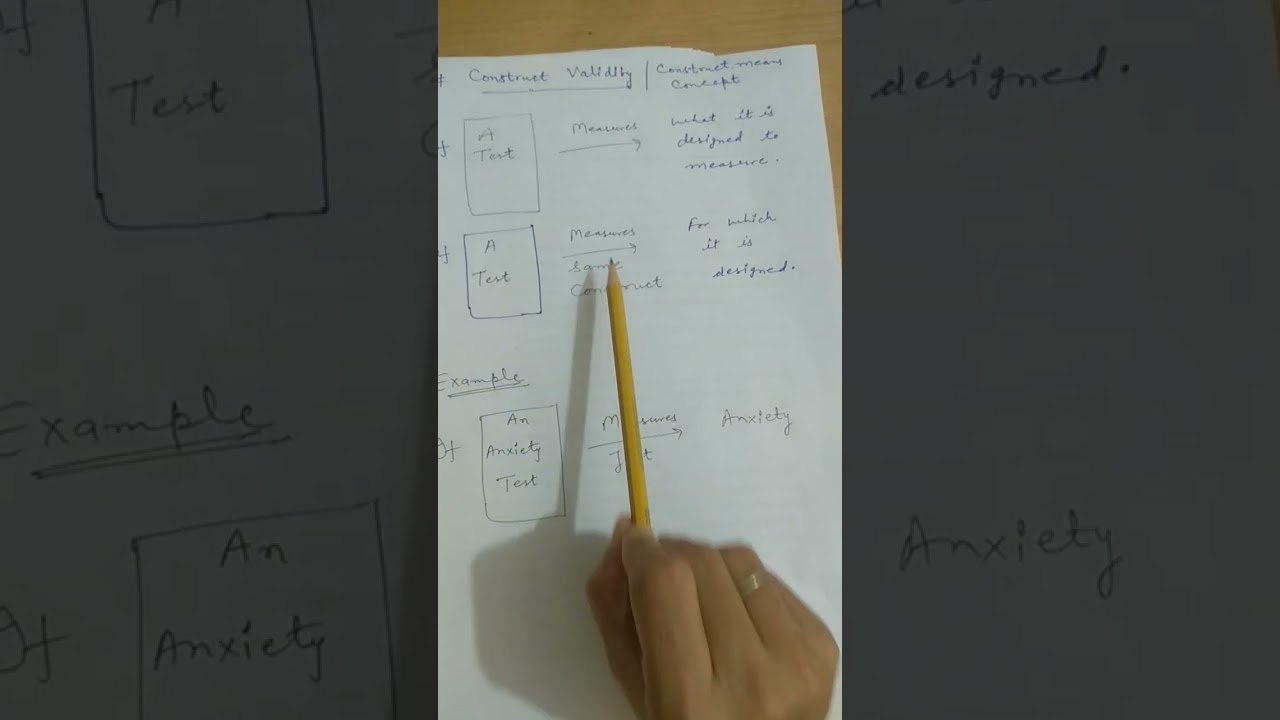 # Construct Validity | Construct means
Concept
If A Test Measures what it is
designed to
measure.
If A Test Measures For which
Same it is
Construct designed.
Example
If An Anxiety Test Measures Anxiety
Just